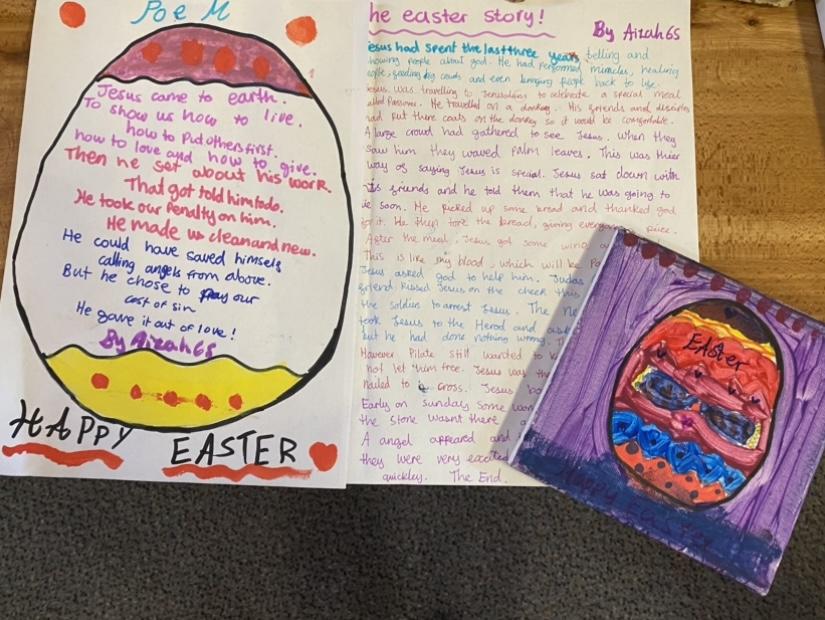 Poem
Jesus came to earth.
To show us how to live.
how to put others first.
how to love and how to give.
Then he set about his work.
That got told him todo.
He took our Penalty on him.
He made us clean and new.
He could have saved himself
calling angels from above.
But he chose to pay our
cost of sin
He gave it out of love!
By Aizah 6S
HAPPY EASTER
he easter story!
By Aizah 6S
esus had spent the last three years telling and
howing people about god. He had performed miracles, healing
big crowds and even bringing people back to life.
esus was travelling to Jerusalem to celebrate a special meal
alled Passover. He travelled on a donkey. His friends and disciples
had put there coats on the donkey so it would be comfortable.
A large crowd had gathered to see Jesus. When they
saw him they waved palm leaves. This was thier
way of saying Jesus is special. Jesus sat down with
his friends and he told them that he was going to
ie soon. He picked up some bread and thanked god
for it. He then tore the bread, giving everyone a piece.
After the meal, Jesus got some wine
This is like my blood, which will be
Jesus asked god to help him. Judas
friend kissed Jesus on the cheek this
the soldiers to arrest Jesus. The
took Jesus to the Herod and
but he had done nothing wrong.
However Pilate still wanted to
not let him free. Jesus was
nailed to a cross. Jesus
Early on sunday some
the stone wasnt there
A angel appeared and
they were very excited
quickley. The End.
Easter
Happy Easter